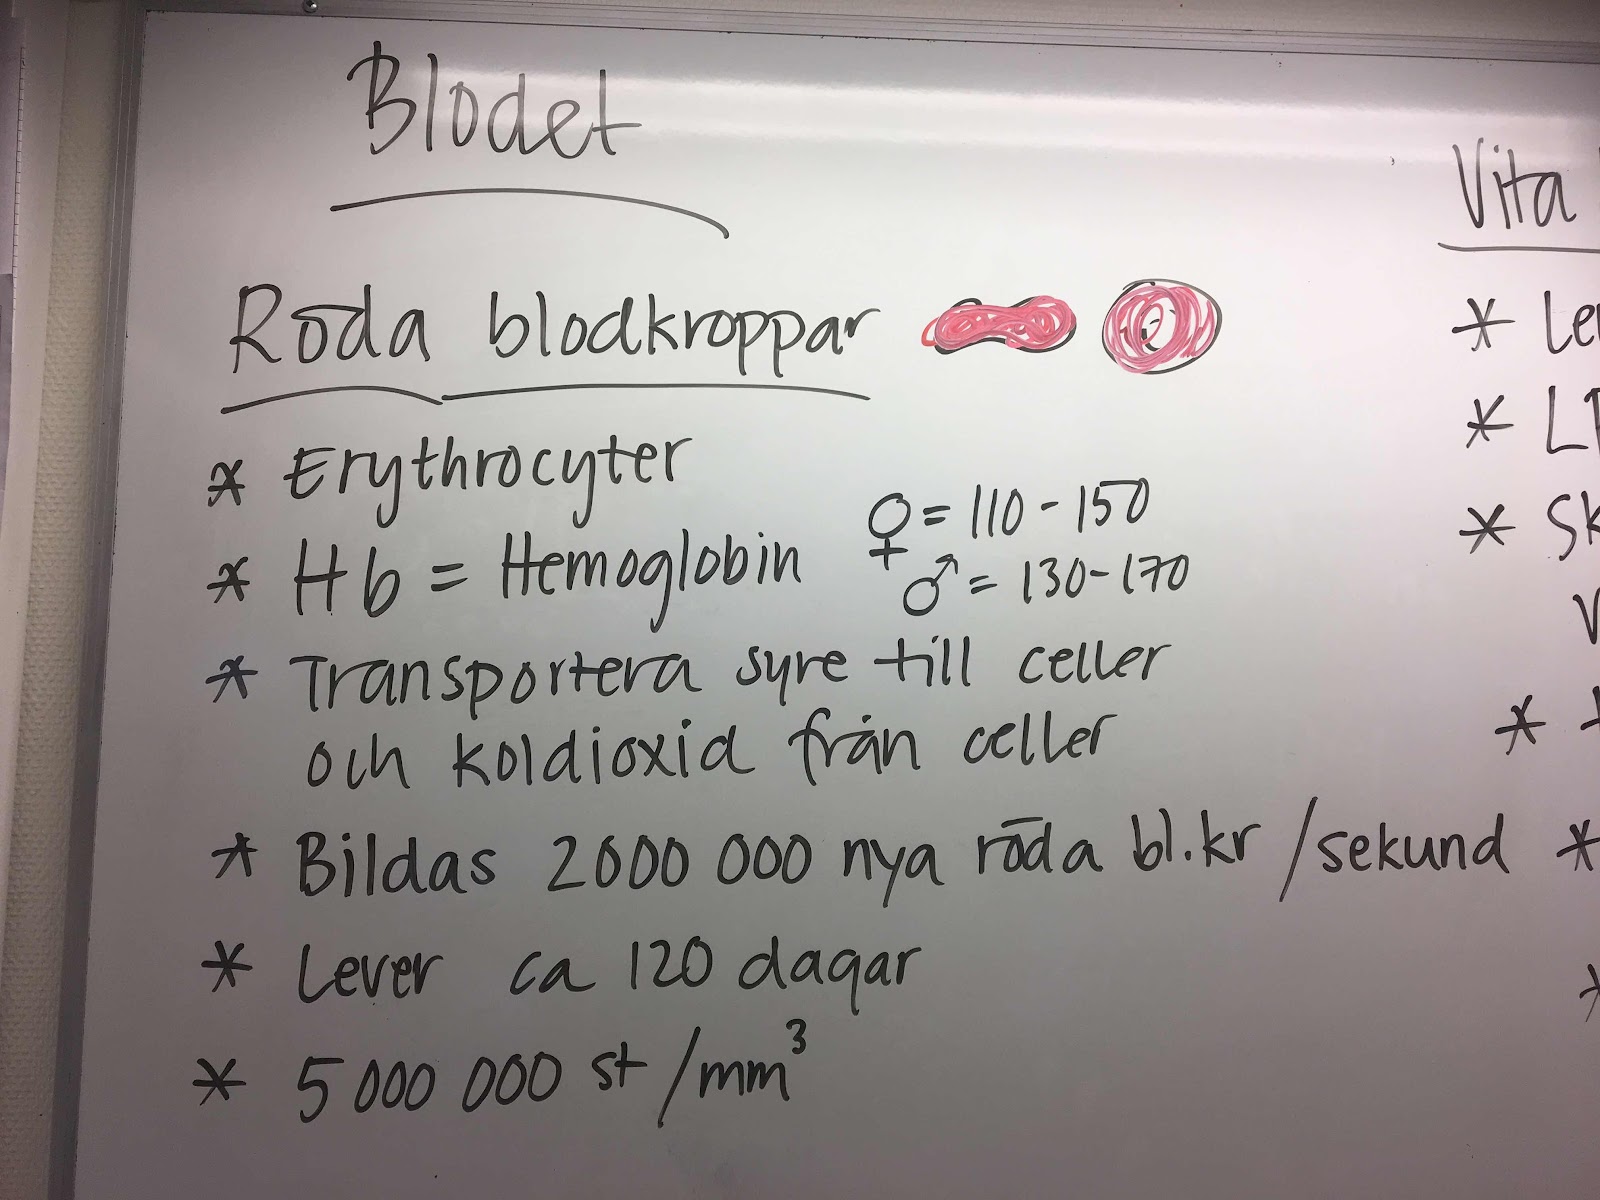 Blodet
Röda blodkroppar
* Erythrocyter
* Hb = Hemoglobin ♀ = 110 - 150
♂ = 130 - 170
* Transportera syre till celler
och koldioxid från celler
* Bildas 2000 000 nya röda bl.kr /sekund
* Lever ca 120 dagar
* 5 000 000 st /mm³
Vita
*
*
*
*
*
*